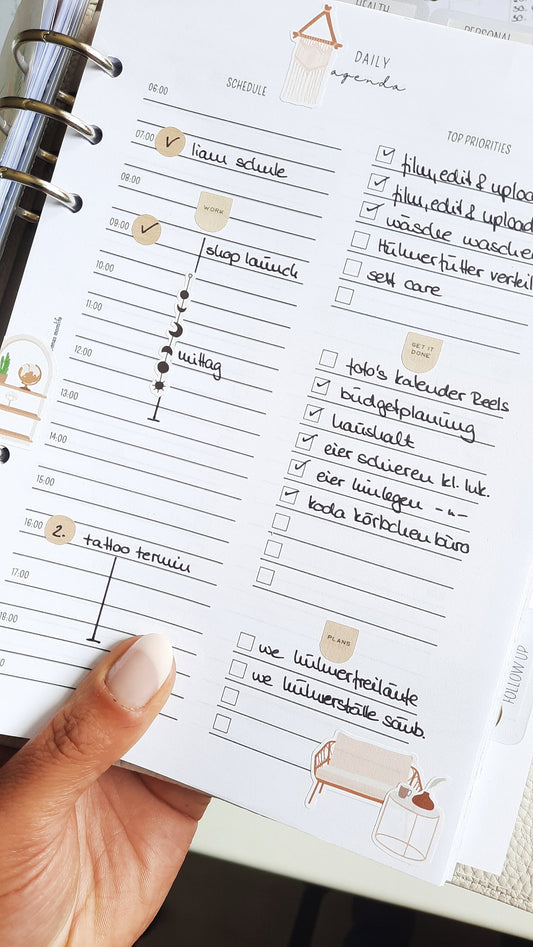 HEALTH
PERSONAL
DAILY
agenda
SCHEDULE
06:00
07:00
liam schule
08:00
WORK
09:00
shop launch
10:00
11:00
12:00
mittag
13:00
14:00
15:00
16:00
2. tattoo termin
17:00
18:00
TOP PRIORITIES
film, edit & uploa
film, edit & upload
wäsche waschen
Hühnerfutter verteil
self care
GET IT
DONE
foto's kalender Reels
budgetplanung
haushalt
eier schieren kl. luk.
eier hinlegen -"-
koda körbchen büro
PLANS
we hühnerfreiläufe
we hühnerställe säub.
FOLLOW UP